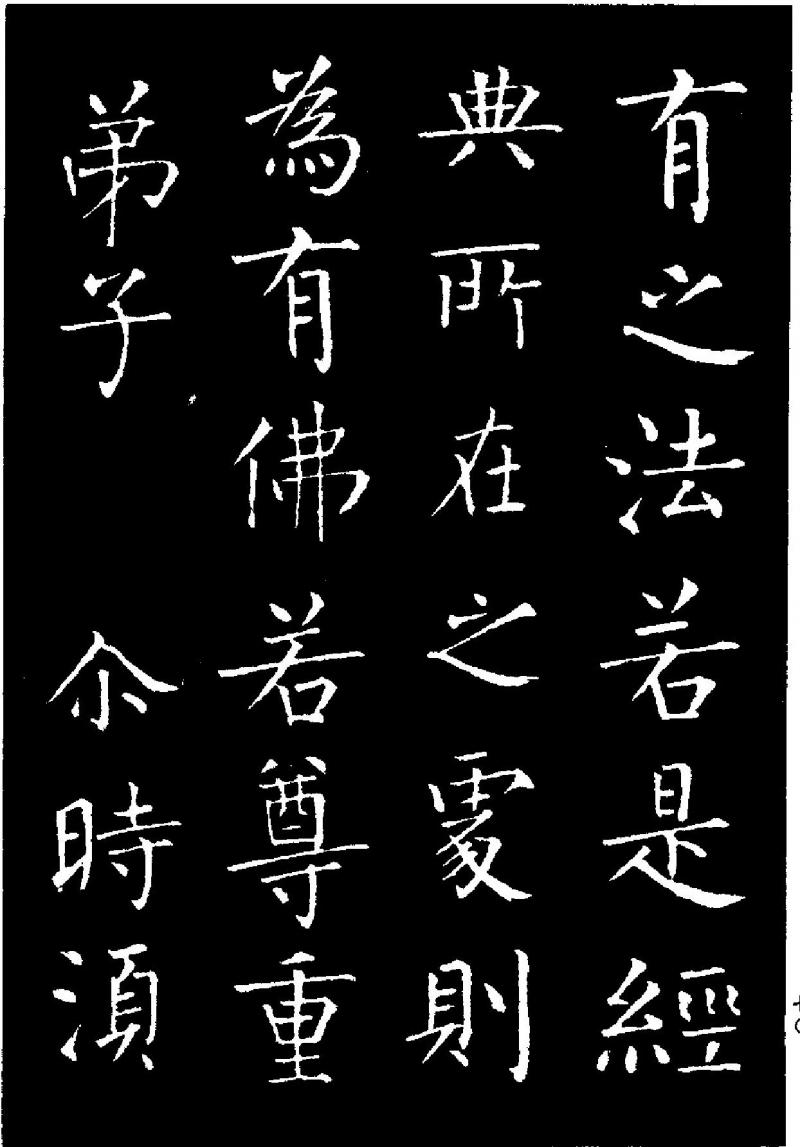 有之法若是經
典所在之處則
為有佛若尊重
弟子 尒時湏